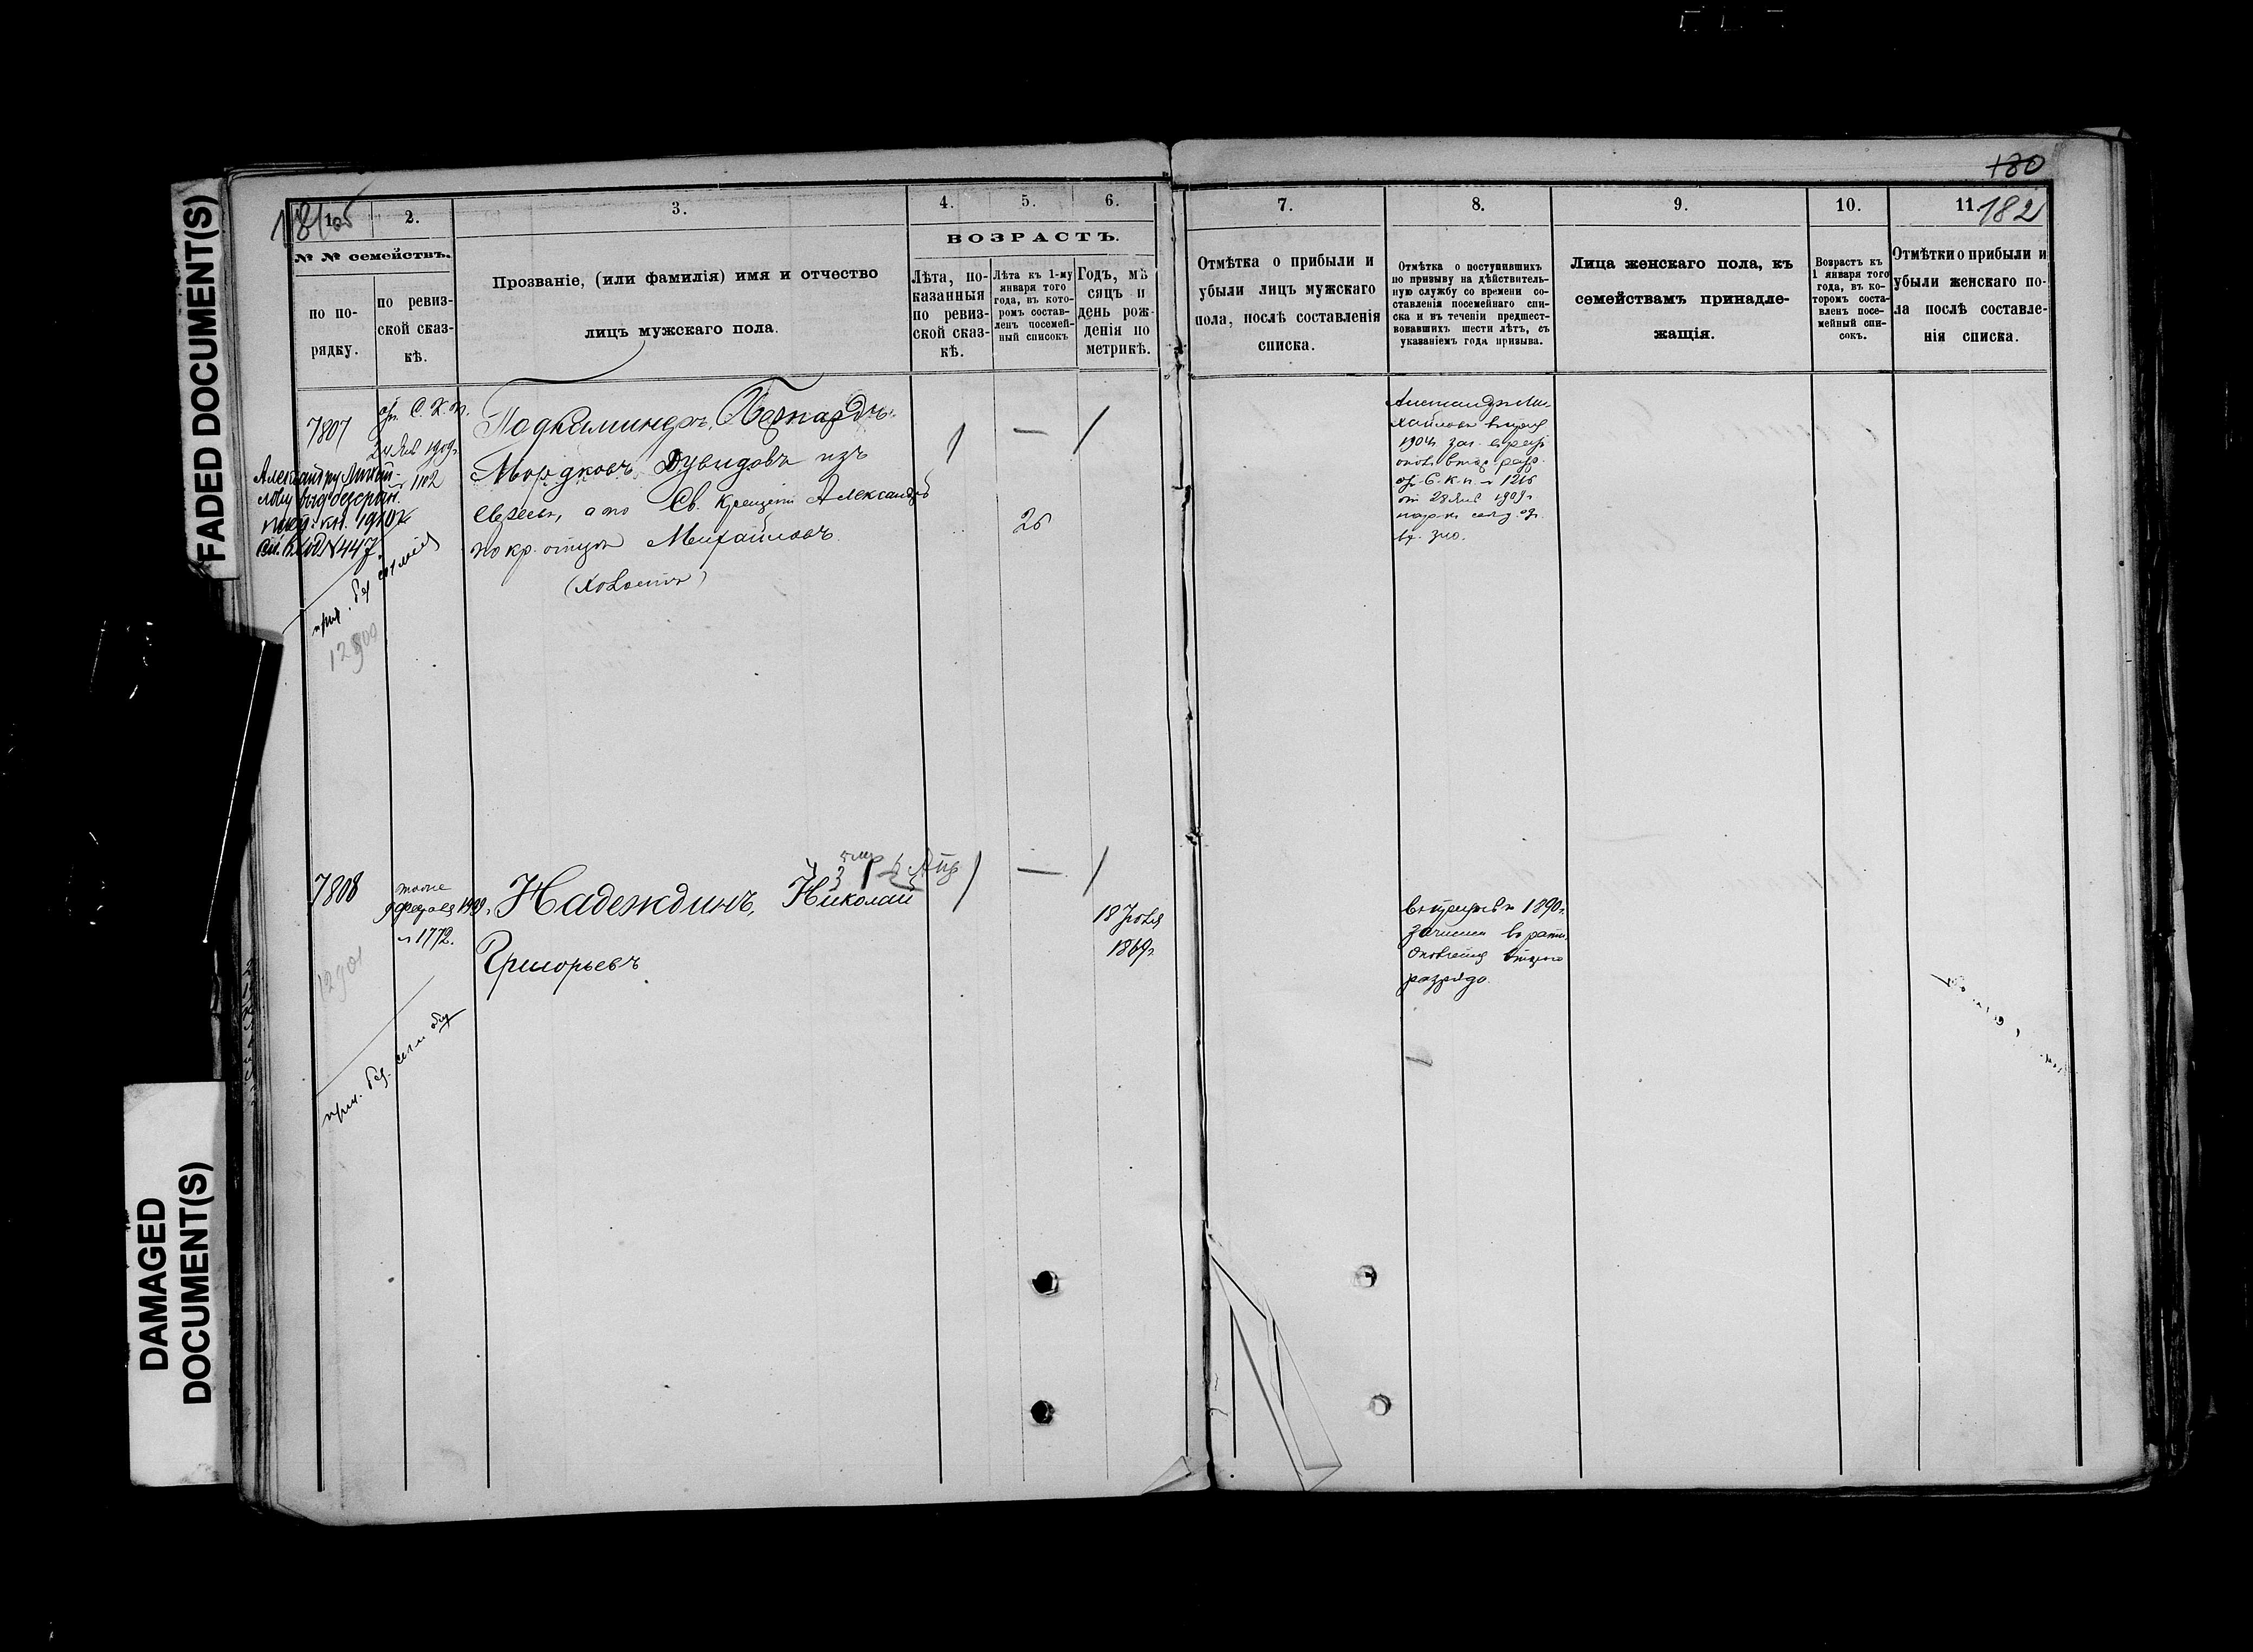 FADED DOCUMENT(S)
DAMAGED
DOCUMENT(S)
180
182
1.
2.
3.
4.
5.
6.
7.
8.
9.
10.
11.
№ № семействъ.
по по-
рядку.
по ревиз-
ской сказ-
кѣ.
Прозваніе, (или фамилія) имя и отчество
лицъ мужскаго пола.
ВОЗРАСТЪ.
Лѣта, по-
казанныя
по ревиз-
ской сказ-
кѣ.
Лѣта къ 1-му
января того
года, въ кото-
ромъ состав-
ленъ посемей-
ный списокъ
Годъ, мѣ
сяцъ и
день рож-
денія по
метрикѣ.
Отмѣтка о прибыли и
убыли лицъ мужскаго
пола, послѣ составленія
списка.
Отмѣтка о поступившихъ
по призыву на дѣйствитель-
ную службу со времени со-
ставленія посемейнаго спи-
ска и въ теченіи предшест-
вовавшихъ шести лѣтъ, съ
указаніемъ года призыва.
Лица женскаго пола, къ
семействамъ принадле-
жащія.
Возрастъ къ
1 января того
года, въ ко-
торомъ соста-
вленъ посе-
мейный спи-
сокъ.
Отмѣтки о прибыли и
убыли женскаго по-
ла послѣ составле-
нія списка.
7807
ор. С. К. П.
24 Янв 1909г.
1102
Александру Михай-
лову выд безсроч.
№447
12900
Бернардъ
Мордковъ Дувидовъ изъ
евреевъ, а по Св. крещеніи Александръ
по кр. отцу Михайловъ
(холостъ)
26
Александръ Ми-
хайловъ въ призыв
1904г. зач. въ рат.
опол. втор. разр.
ор. С. К. П. 1216
от 28 Янв 1909г.
7808
тоже
9 Февраля 1909г.
1772.
12901
Надеждинъ, Николай
Григорьевъ
18 Іюля
1869г.
въ призывъ 1890г.
зачисленъ въ ратн.
ополченія втораго
разряда.